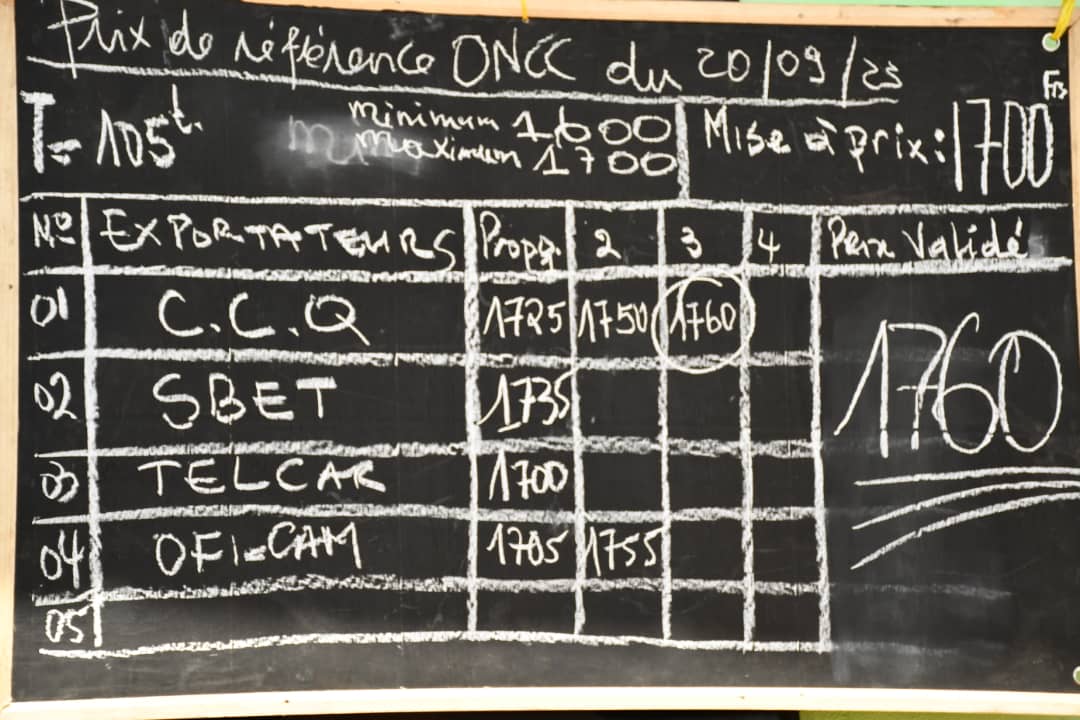 Prix de référence ONCC du 20/09/23
T= 105t. minimum 1600 Mise à prix: 1700 Frs
maximum 1700
No EXPORTATEURS Propo. 2 3 4 Prix Validé
01 C.C.Q 1725 1750 1760 1760
02 SBET 1735
03 TELCAR 1700
04 OFI-CAM 1705 1755
05